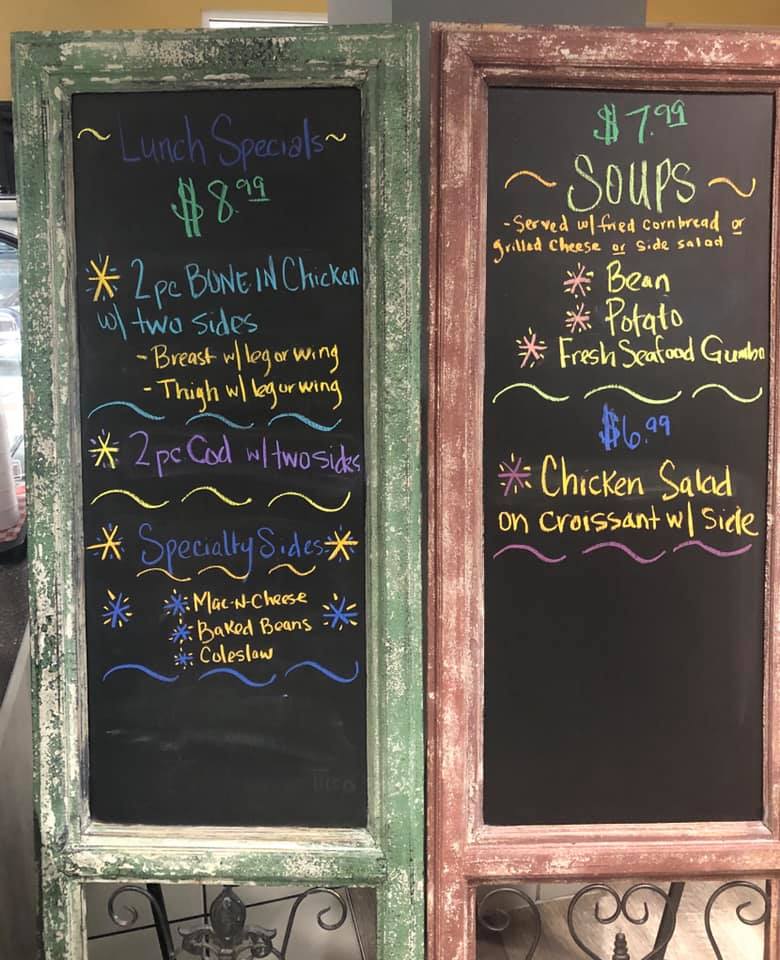 Lunch Specials
$8.99
2pc BONE IN Chicken
w/ two sides
- Breast w/ leg or wing
- Thigh w/ leg or wing
2pc Cod w/ two sides
Specialty Sides
Mac-N-Cheese
Baked Beans
Coleslaw
$7.99
SOUPS
- Served w/ fried cornbread or
grilled cheese or side salad
Bean
Potato
Fresh Seafood Gumbo
$6.99
Chicken Salad
on croissant w/ Side